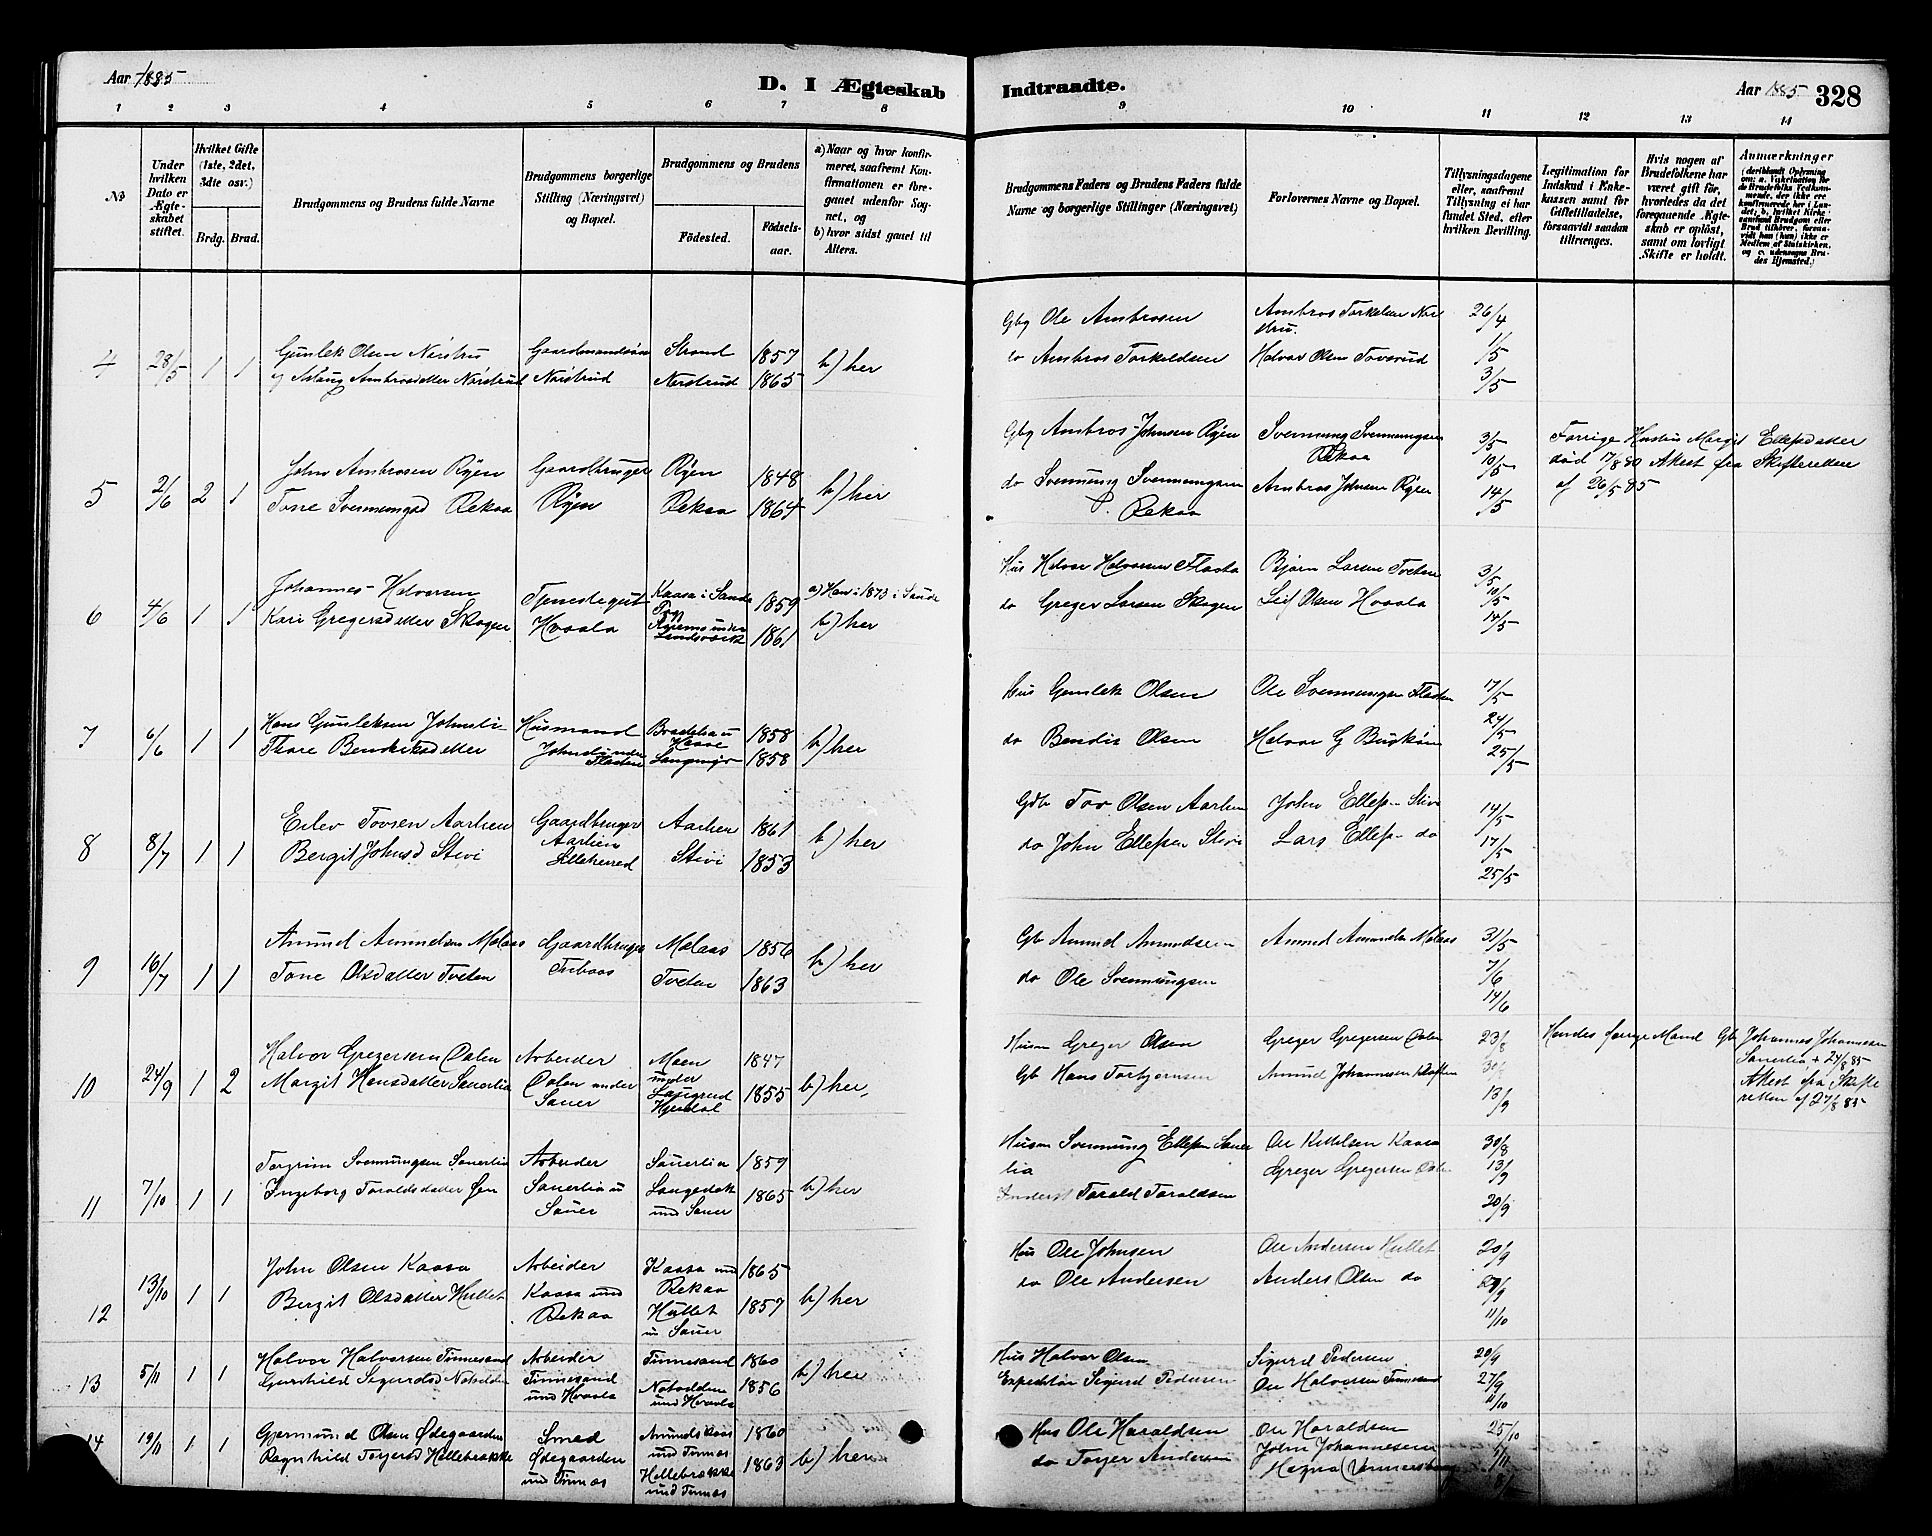 Aar 1885
D. I Ægteskab
Indtraadte.
Aar 1885
328
1 2 3 4 5 6 7 8
9 10 11 12 13 14
No
Under hvilken Dato er Ægteskabet stiftet.
Hvilket Gifte (1ste, 2det, 3die osv.)
Brdg. Brud.
Brudgommens og Brudens fulde Navne
Brudgommens borgerlige Stilling (Næringsvei) og Bopæl.
Brudgommens og Brudens
Fødested.
Fødselsaar.
a) Naar og hvor konfirmeret, saafremt Konfirmationen er foregaaet udenfor Sognet, og
b) hvor sidst gaaet til Alters.
Brudgommens Faders og Brudens Faders fulde Navne og borgerlige Stillinger (Næringsvei)
Forlovernes Navne og Bopæl.
Tillysningsdagene eller, saafremt Tillysning ei har fundet Sted, efter hvilken Bevilling.
Legitimation for Indskud i Enkekassen samt for Giftetilladelse, forsaavidt saadan tiltrænges.
Hvis nogen af Brudefolkene har været gift før, hvorledes da det foregaaende Ægteskab er opløst, samt om lovligt Skifte er holdt.
Anmærkninger
4 28/5 1 1
Gunlek Olsen Nørstrud
og Aslaug Ambrosdatter Nørstrud
Gaardmandssøn
Nørstrud
Strand 1857
Nerstrud 1865
b) her
Gbg Ole Ambrosen
do Ambros Torkeldsen
Ambros Torkelsen Nordstru.
Halvor Olsen Toverud
26/4
1/5
3/5
5 2/6 2 1
John Ambrosen Ryen
Tone Svennungsd Rekaa
Gaardbruger
Ryen
Ryen 1848
Rekaa 1864
b) her
Gbg Ambros Johnsen Ryen
do Svennung Svennungsen
Rekaa
Svennung Svennungsen
Rekaa
Ambros Johnsen Ryen
3/5
10/5
14/5
Forrige Hustru Margit Ellefsdatter
død 17/8 80 Attest fra Skifteretten
af 26/5 85
6 4/6 1 1
Johannes Halvorsen
Kari Gregersdatter Skogen
Tjenestegut
Hvaala
Kaasa i Sande 1859
1861
a) Han i 1873 i Saude
b) her
Hus Halvor Halvorsen Flaata
do Greger Larsen Skogen
Bjørn Larsen Tveten
Leif Olsen Hvaala
3/5
10/5
14/5
7 6/6 1 1
Hans Gunleksen Johnsli
Thore Bendiksdatter
Husmand
Johnsli under
Flaaten
1858
1858
b) her
Hus Gunlek Olsen
do Bendix Olsen
Ole Svennungsen Flaaten
Halvor G
17/5
24/5
25/5
8 8/7 1 1
Eilev Tovsen Aarlien
Bergit Johnsd Stivi
Gaardbruger
Aarlien
Lilleherred
Aarlien 1861
Stivi 1853
b) her
Gdb Tov Olsen Aarlien
do John Ellefsen Stivi
John Ellefs- Stivi
Lars Ellefs- do
14/5
17/5
25/5
9 10/7 1 1
Amund Amundsen Mælaas
Tone Olsdatter Tveten
Gaardbruger
Mælaas 1856
Tveten 1863
b) her
Gb Amund Amundsen
do Ole Svennungsen
Amund Amundsen Mælaas
31/5
7/6
14/6
10 24/9 1 2
Halvor Gregersen Oalen
Margit Hansdatter Sauerlia
Arbeider
Oalen under
Sauer
Moen 1847
under
Langrud 1855
Hjerdal
b) her.
Husm Greger Olsen
Gb Hans Torbjørnsen
Greger Gregersen Oalen
Amund Johannesen
23/8
30/8
13/9
Hendes forrige Mand Gb Johannes Johannesen
Sauerlia + 24/2 85
Attest fra Skifte
retten af 27/8 85
11 7/10 1 1
Torgrim Svennungsen Sauerlia
Ingeborg Taraldsdatter Øen
Arbeider
Sauerlia u
Sauer
Sauerlia 1859
Langedok 1865
und Sauer
b) her
Husm Svennung Ellefsen Sauer
lia
Inderst Tarald Taraldsen
Ole Kittilsen Kaasa
Greger Gregersen Oalen
30/8
13/9
20/9
12 13/10 1 1
John Olsen Kaasa
Bergit Olsdatter Hullet
Arbeider
Kaasa und
Rekaa
Kaasa und 1865
Rekaa
Hullet 1857
un Sauer
b) her
Hus Ole Johnsen
do Ole Andersen
Ole Andersen Hullet
Anders Olsen do
20/9
27/9
11/10
13 5/11 1 1
Halvor Halvorsen Tinnesand
Gunhild Sigurdsd Notodden
Arbeider
Tinnesand
und Hvaala
Tinnesand 1860
Notodden 1856
und Hvaala
b) her
Hus Halvor Olsen
Expeditør Sigurd Pedersen
Sigurd Pedersen
Ole Halvorsen Tinnesand
20/9
27/9
4/10
14 19/11 1 1
Gjermund Olsen Ødegaarden
Ragnhild Torjersd Hellebrække
Smed
Ødegaarden
und Tinnæs
Amundskaas 1860
und Tinnæs
Hellebrække 1863
und Tinnæs
b) her
Hus Ole Haraldsen
do Torjer Andersen
Ole Haraldsen
John Johannesen
25/10
1/11
8/11